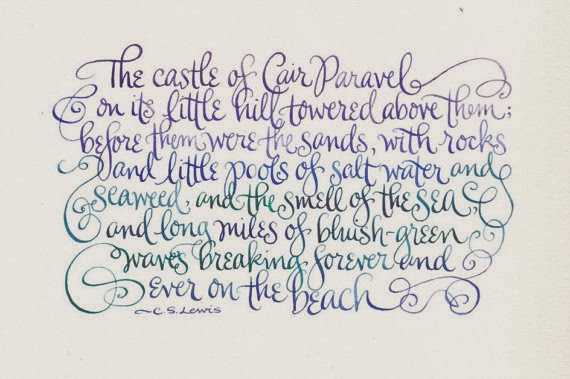 The castle of Cair Paravel
on its little hill towered above them;
before them were the sands, with rocks
and little pools of salt water and
seaweed, and the smell of the sea,
and long miles of bluish-green
waves breaking forever and
ever on the beach
~C.S. Lewis